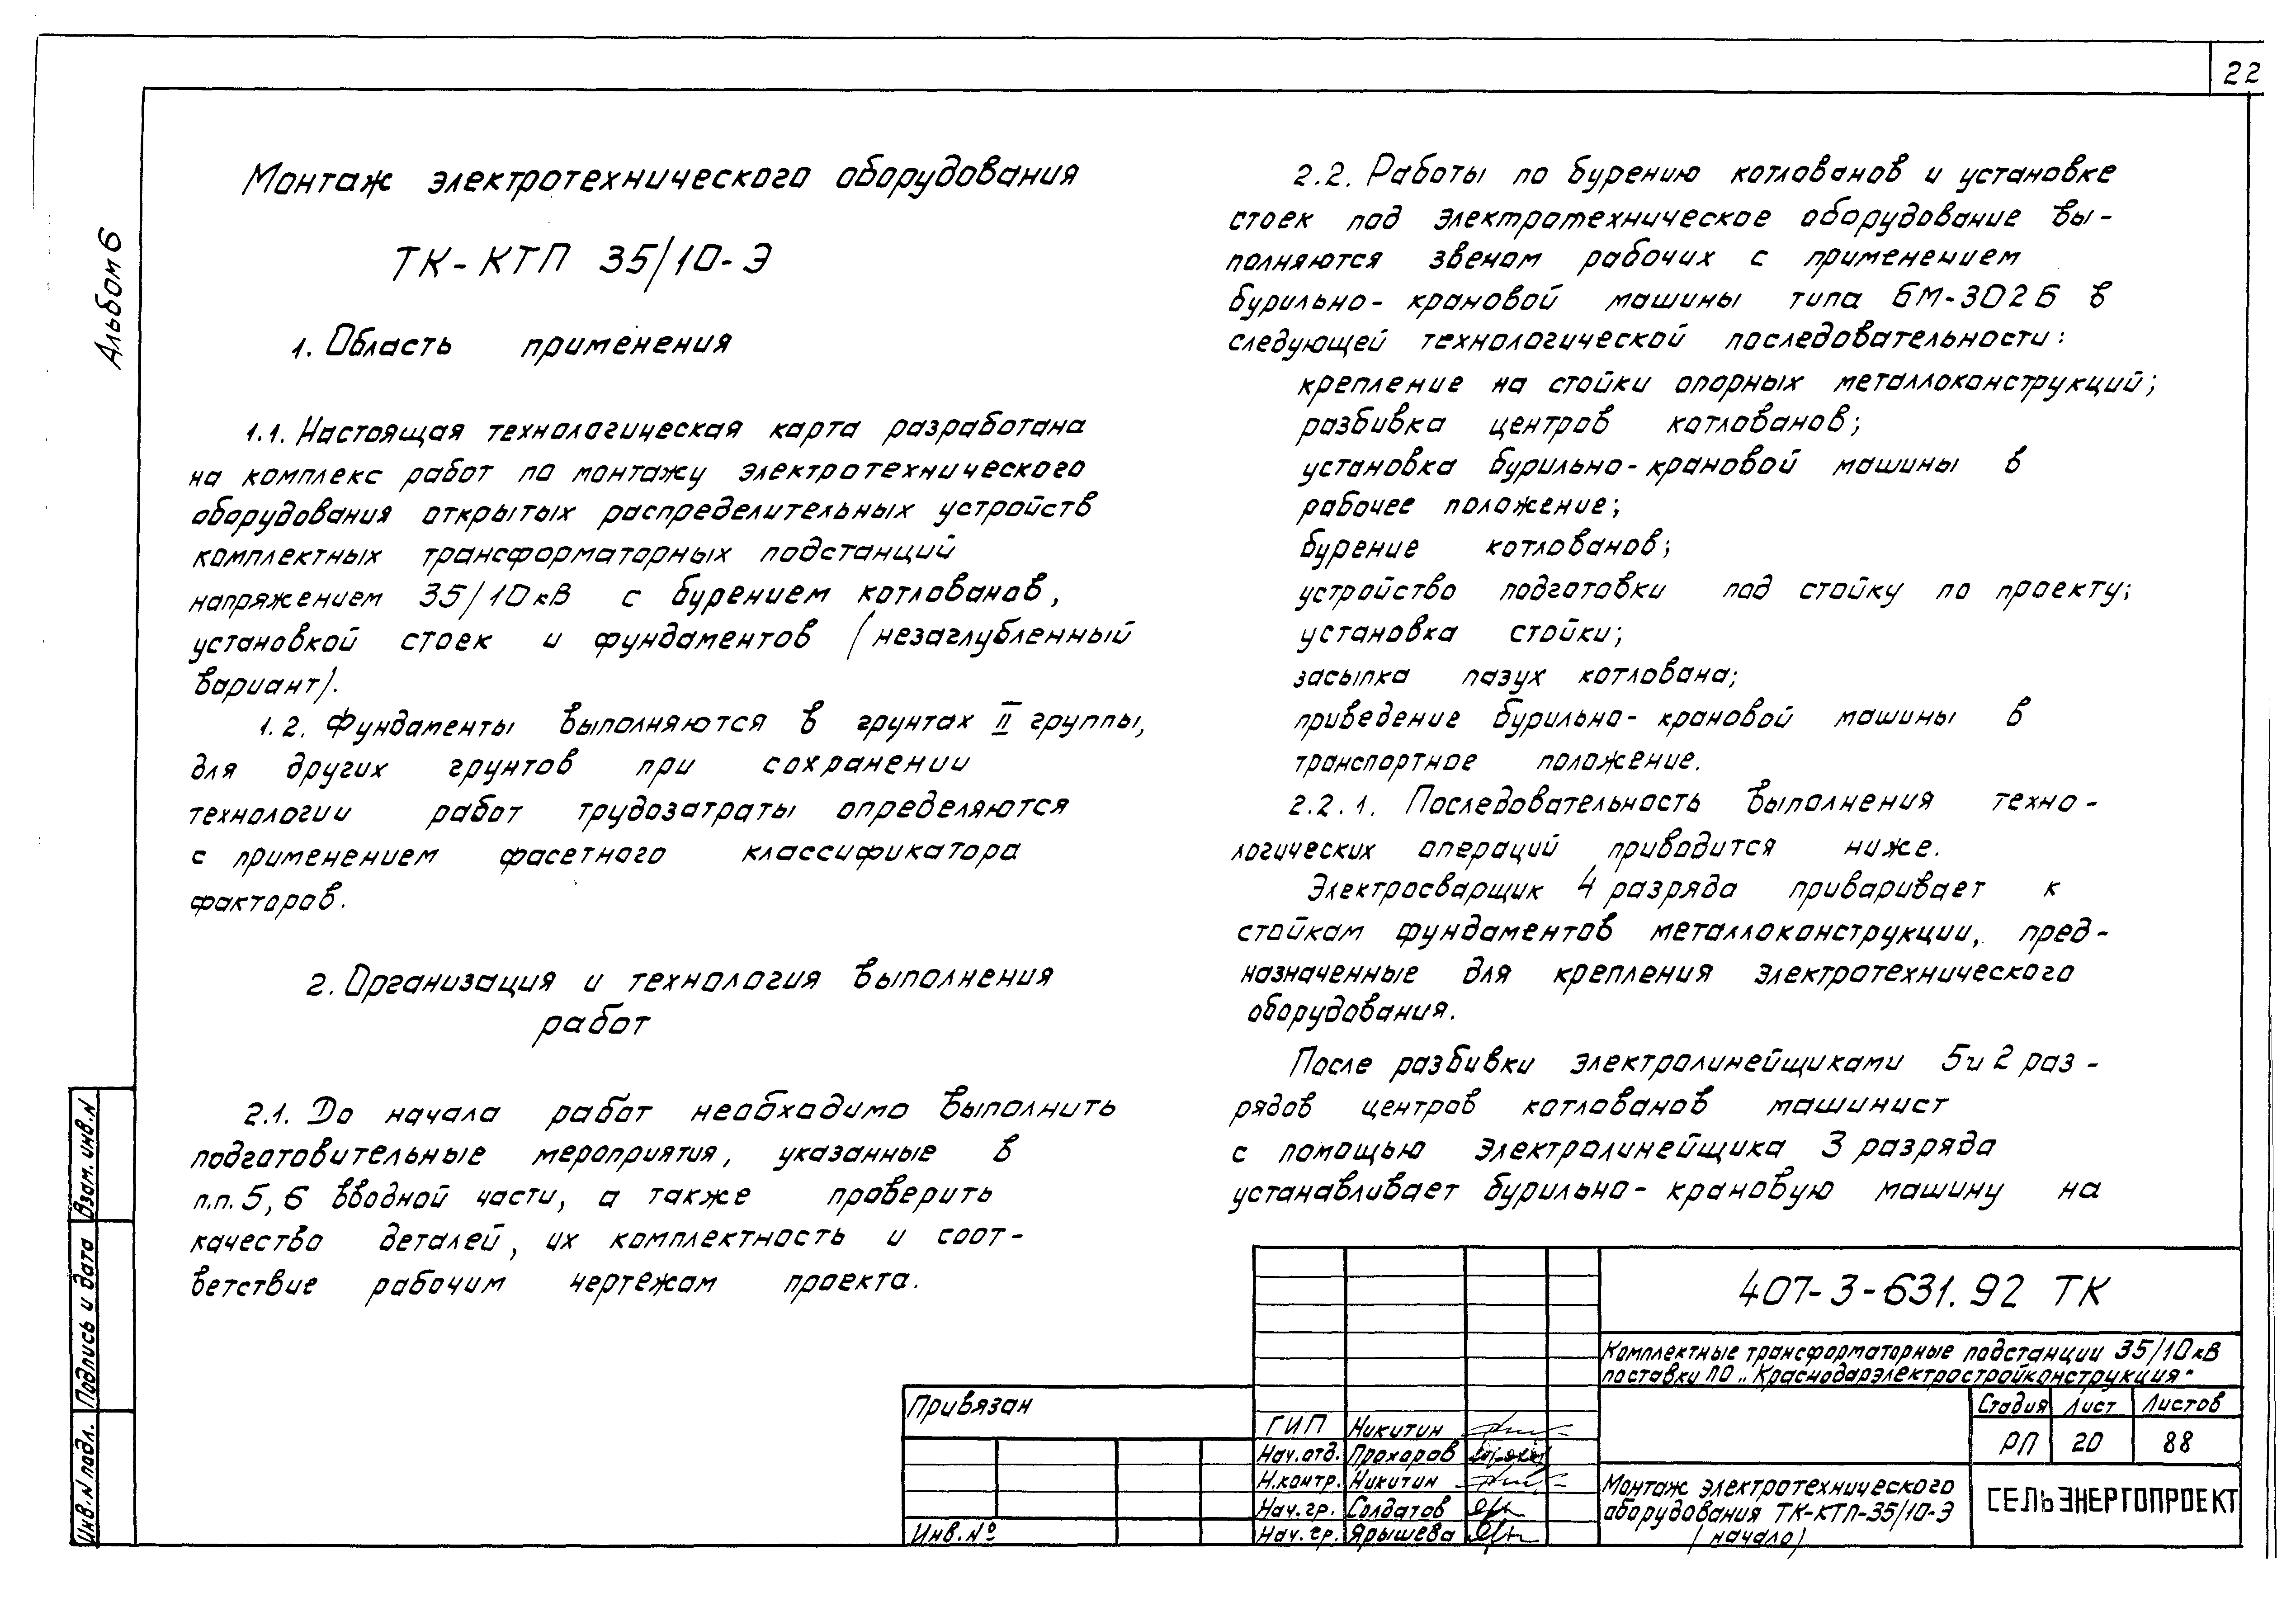 22
Альбом 6
Монтаж электротехнического оборудования
ТК-КТП 35/10-Э
1. Область применения
1.1. Настоящая технологическая карта разработана
на комплекс работ по монтажу электротехнического
оборудования открытых распределительных устройств
комплектных трансформаторных подстанций
напряжением 35/10кВ с бурением котлованов,
установкой стоек и фундаментов (незаглубленный
вариант).
1.2. Фундаменты выполняются в грунтах II группы,
для других грунтов при сохранении
технологии работ трудозатраты определяются
с применением фасетного классификатора
факторов.
2. Организация и технология выполнения
работ
2.1. До начала работ необходимо выполнить
подготовительные мероприятия, указанные в
п.п. 5, 6 вводной части, а также проверить
качество деталей, их комплектность и соот-
ветствие рабочим чертежам проекта.
2.2. Работы по бурению котлованов и установке
стоек под электротехническое оборудование вы-
полняются звеном рабочих с применением
бурильно-крановой машины типа БМ-302Б в
следующей технологической последовательности:
крепление на стойки опорных металлоконструкций;
разбивка центров котлованов;
установка бурильно-крановой машины в
рабочее положение;
бурение котлованов;
устройство подготовки под стойку по проекту;
установка стойки;
засыпка пазух котлована;
приведение бурильно-крановой машины в
транспортное положение.
2.2.1. Последовательность выполнения техно-
логических операций приводится ниже.
Электросварщик 4 разряда приваривает к
стойкам фундаментов металлоконструкции, пред-
назначенные для крепления электротехнического
оборудования.
После разбивки электролинейщиками 5 и 2 раз-
рядов центров котлованов машинист
с помощью электролинейщика 3 разряда
устанавливает бурильно-крановую машину на
Взам. инв. N
Подпись и дата
Инв. N подл.
Привязан
Инв. №
ГИП Никитин
Нач. отд. Прохоров
Н. контр. Никитин
Нач. гр. Солдатов
Нач. гр. Ярышева
407-3-631.92 ТК
Комплектные трансформаторные подстанции 35/10кВ
поставки ПО „Краснодарэлектростройконструкция"
Стадия Лист Листов
РП 20 88
Монтаж электротехнического
оборудования ТК-КТП-35/10-Э
(начало)
СЕЛЬЭНЕРГОПРОЕКТ